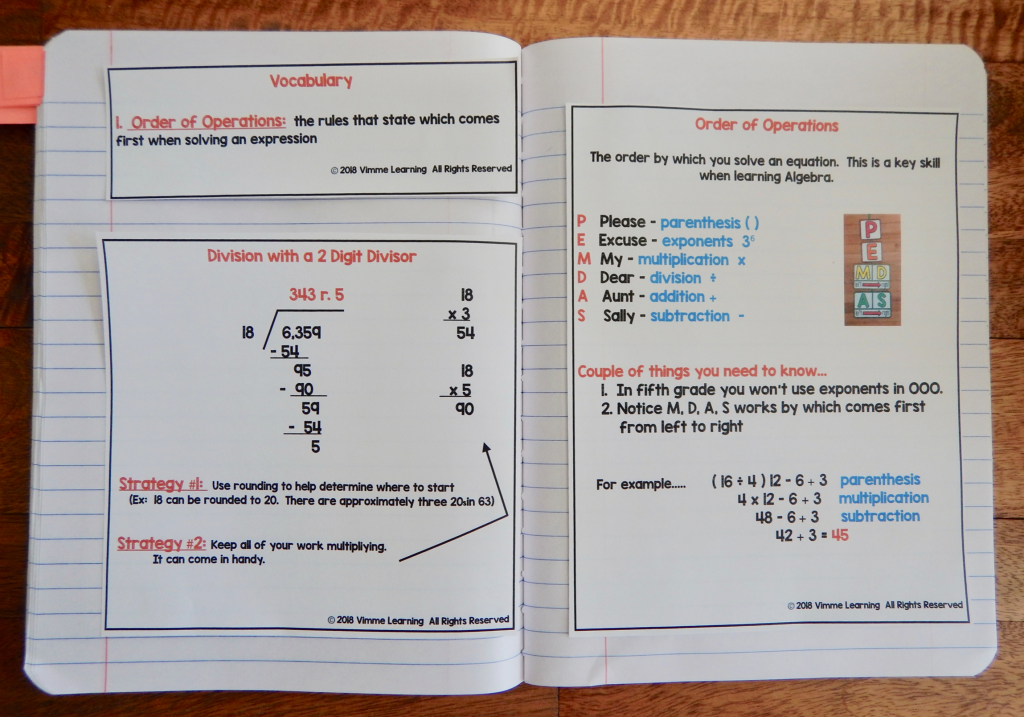 Vocabulary
1. Order of Operations: the rules that state which comes
first when solving an expression
© 2018 Vimme Learning All Rights Reserved
Division with a 2 Digit Divisor
343 r. 5
18 6,359
- 54
95
- 90
59
- 54
5
18
x 3
54
18
x 5
90
Strategy #1: Use rounding to help determine where to start
(Ex: 18 can be rounded to 20. There are approximately three 20s in 63)
Strategy #2: Keep all of your work multipliying.
It can come in handy.
© 2018 Vimme Learning All Rights Reserved
Order of Operations
The order by which you solve an equation. This is a key skill
when learning Algebra.
P Please - parenthesis ( )
E Excuse - exponents 3⁶
M My - multiplication x
D Dear - division ÷
A Aunt - addition +
S Sally - subtraction -
P
E
M D
A S
Couple of things you need to know...
1. In fifth grade you won't use exponents in OOO.
2. Notice M, D, A, S works by which comes first
from left to right
For example..... ( 16 ÷ 4 ) 12 - 6 + 3 parenthesis
4 x 12 - 6 + 3 multiplication
48 - 6 + 3 subtraction
42 + 3 = 45
© 2018 Vimme Learning All Rights Reserved